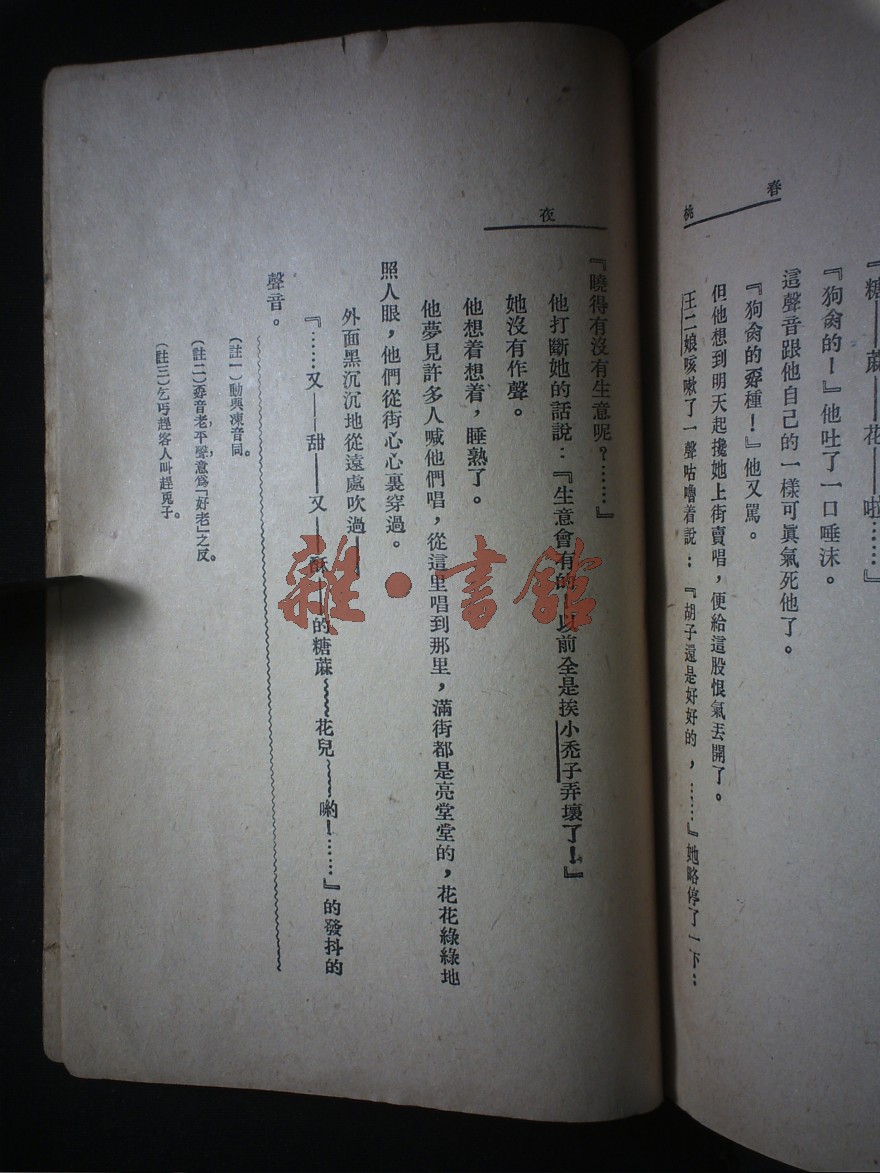 春桃
『糖——蔴——花——啦……』
『狗肏的！』他吐了一口唾沫。
這聲音跟他自己的一樣可眞氣死他了。
『狗肏的孬種！』他又駡。
但他想到明天起攙她上街賣唱，便給這股恨氣丟開了。
王二娘咳嗽了一聲咕嚕着說：『胡子還是好好的，……』她略停了一下：
夜
『曉得有沒有生意呢？……』
他打斷她的話說：『生意會有的 以前全是挨小禿子弄壞了！』
她沒有作聲。
他想着想着，睡熟了。
他夢見許多人喊他們唱，從這里唱到那里，滿街都是亮堂堂的，花花綠綠地
照人眼，他們從街心心裏穿過。
外面黑沉沉地從遠處吹過——
『……又——甜——又——酥——的糖蔴～～～花兒～～～喲！……』的發抖的
聲音。
（註一）動與凍音同。
（註二）孬音老，平聲，意爲「好老」之反。
（註三）乞丐趕客人叫趕兎子。
雜·書館